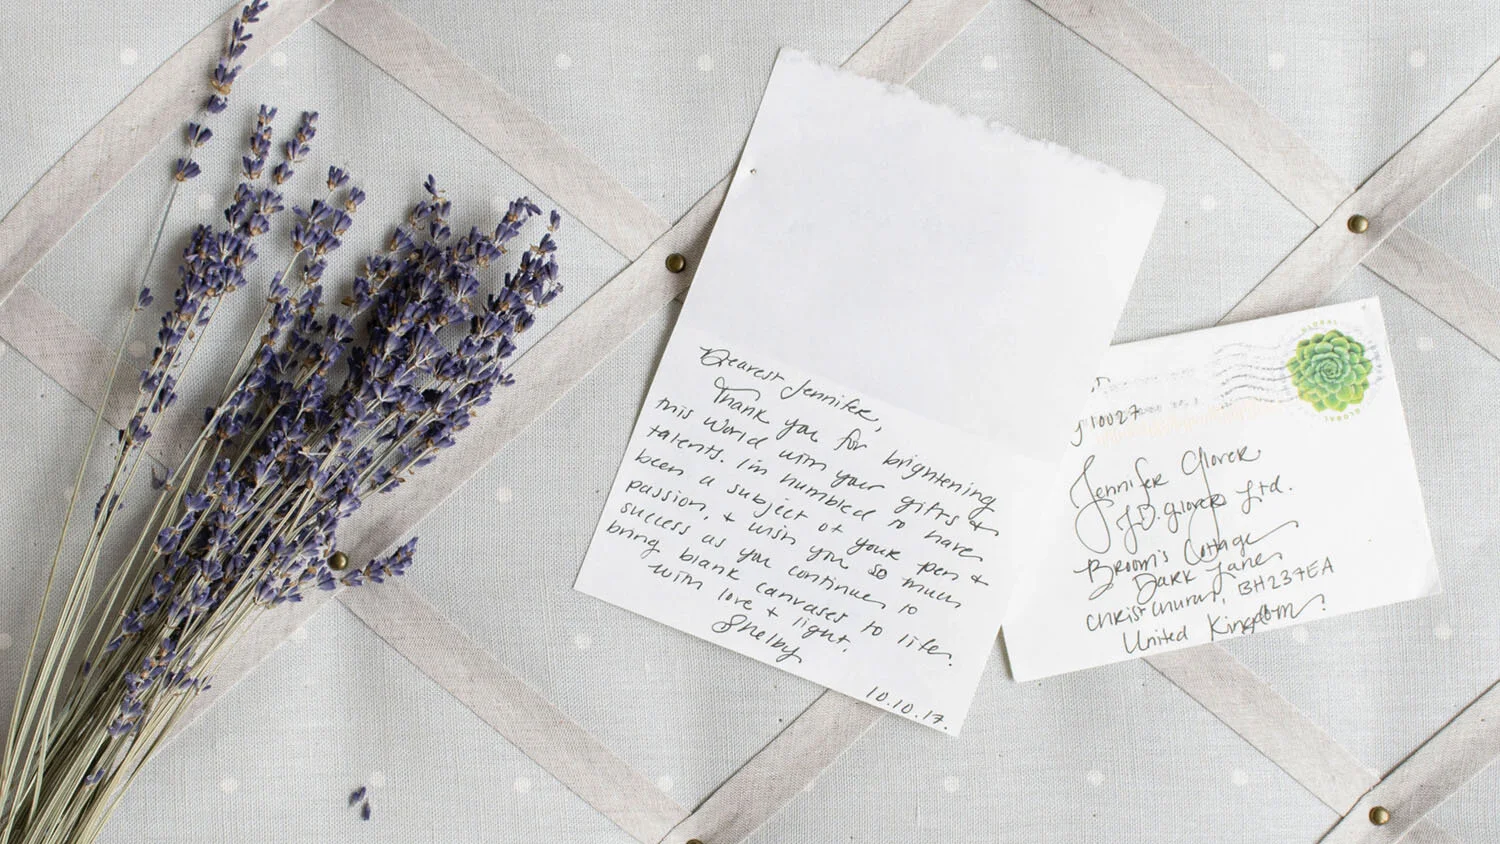 Dearest Jennifer,
Thank you for brightening
this world with your gifts &
talents. I'm humbled to have
been a subject of your pen &
passion, & wish you so much
success as you continue to
bring blank canvases to life.
with love & light,
Shelby
10.10.17.
10027
Jennifer Glover
J.D. Glover Ltd.
Broom's Cottage
Dark Lane
Christchurch, BH237EA
United Kingdom
GLOBAL
GLOBAL